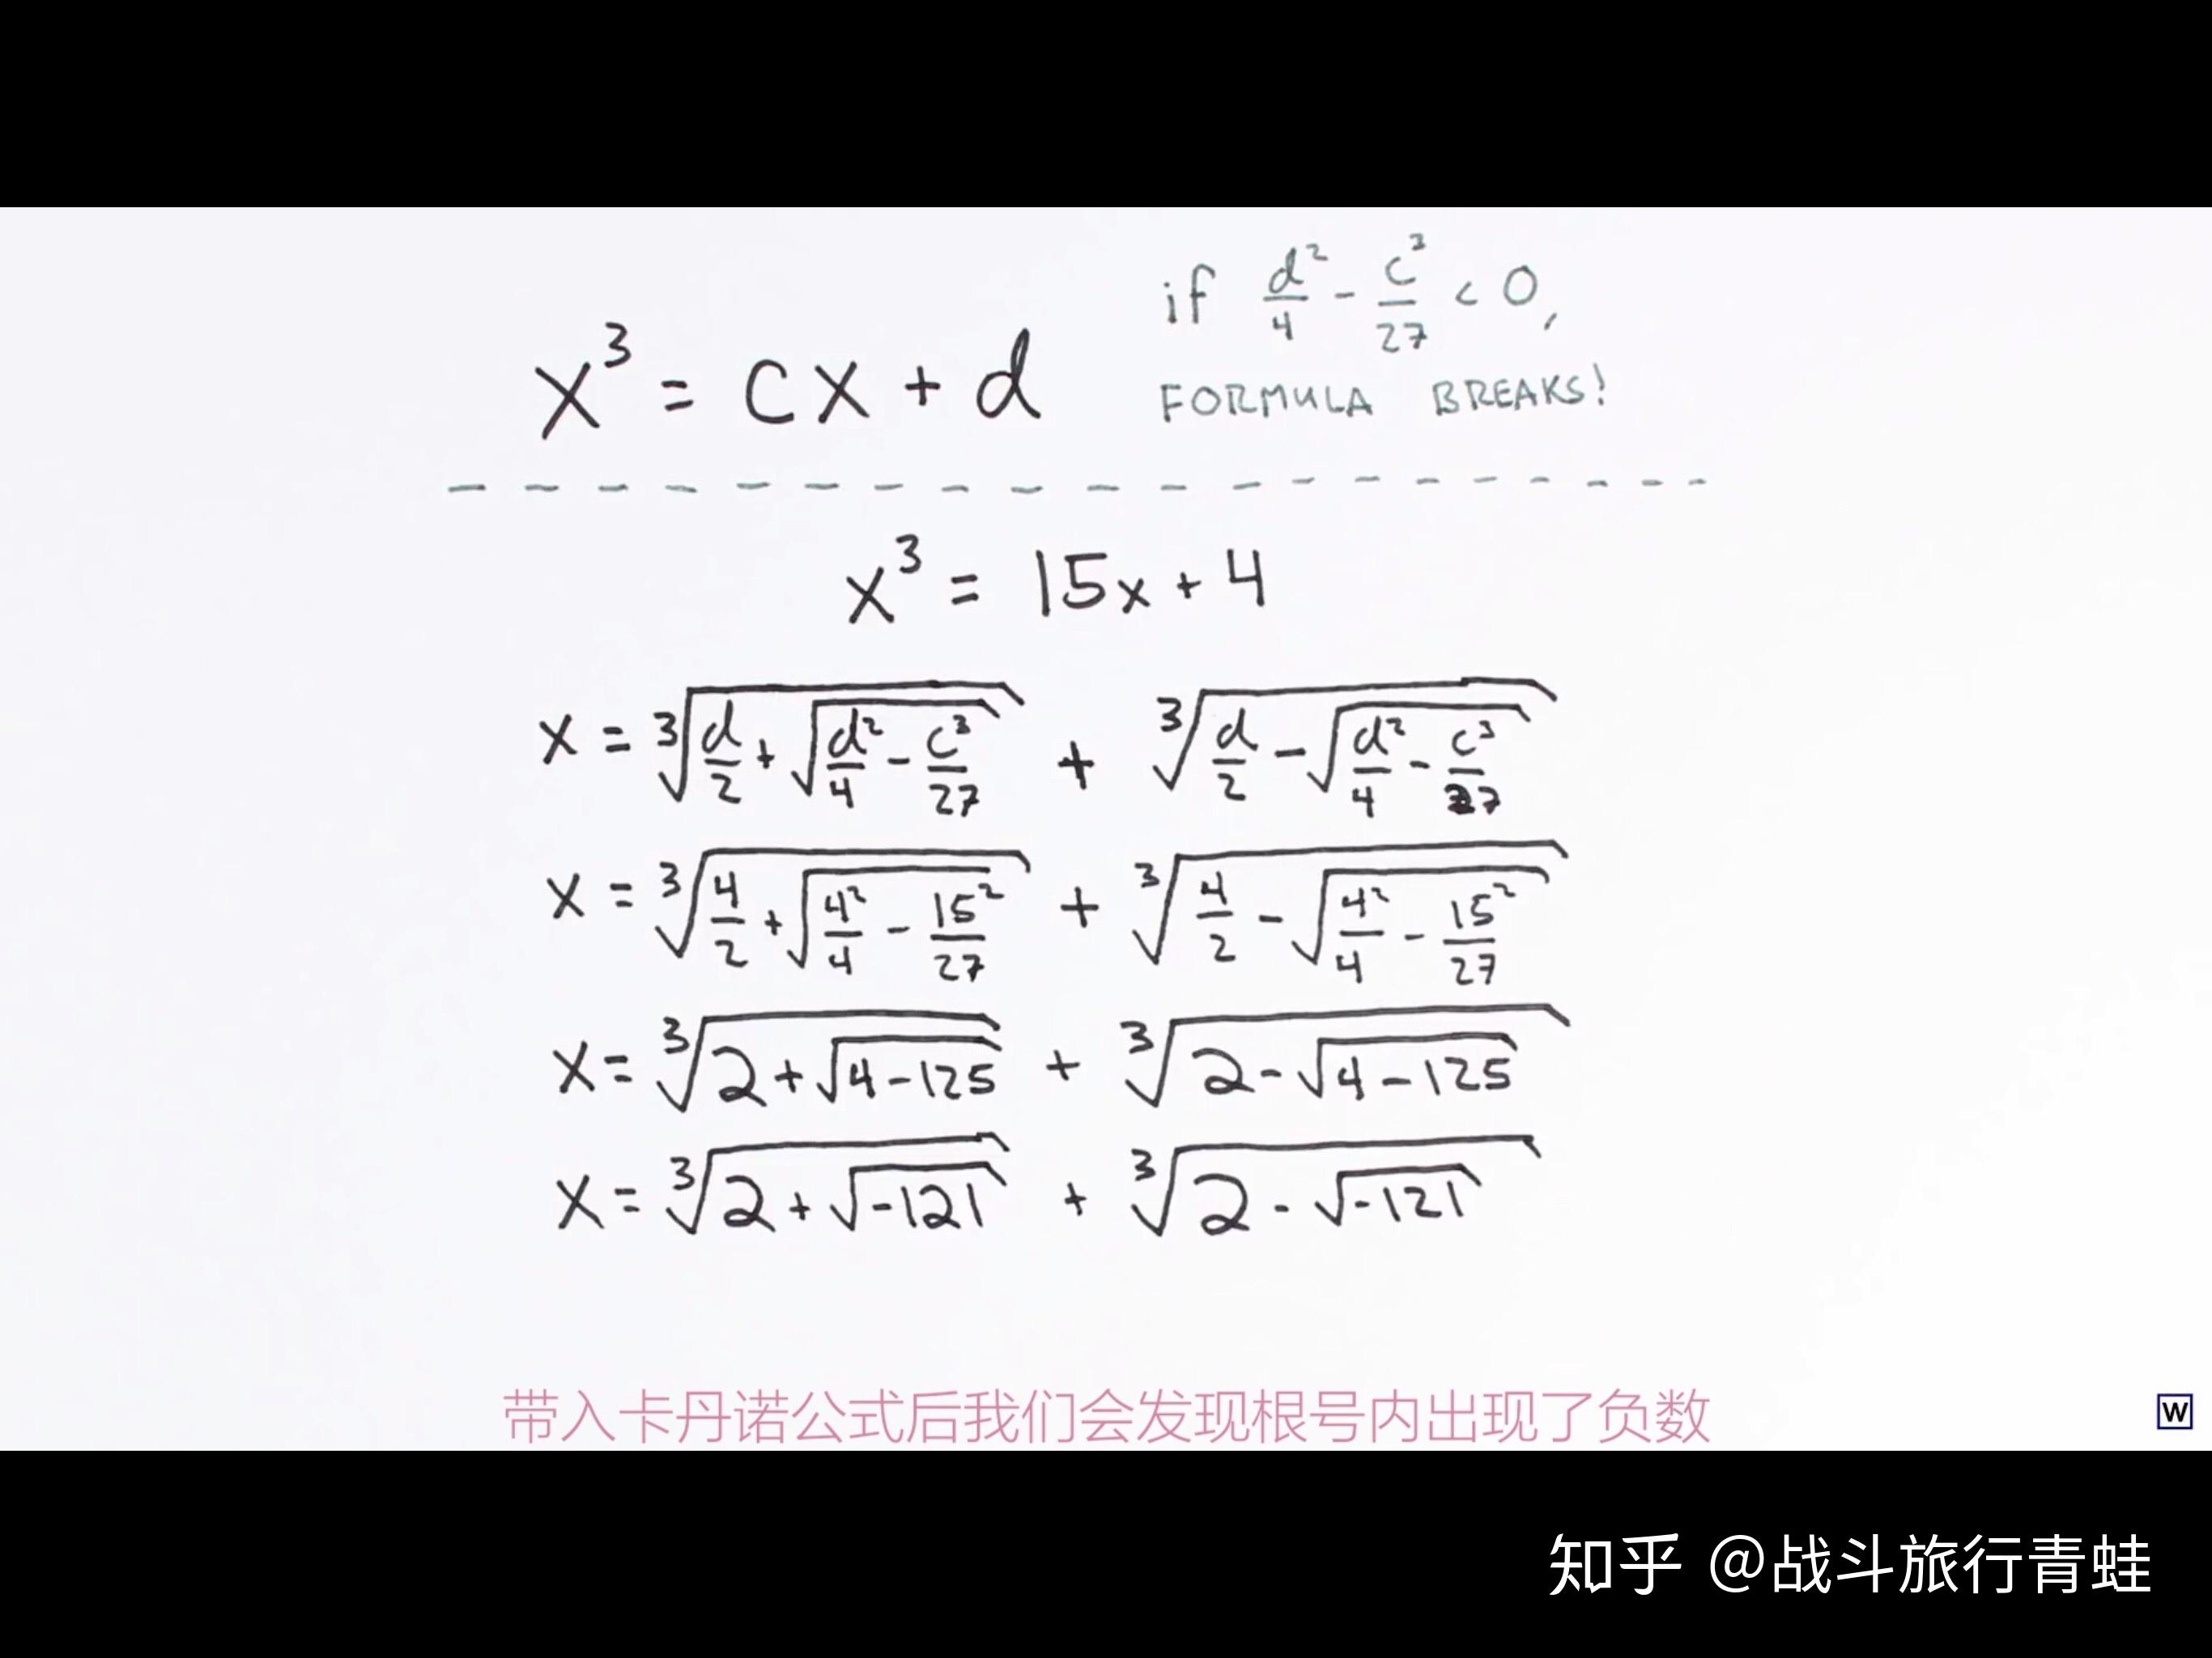 x³ = cx + d
if d²/4 - c³/27 < 0,
FORMULA BREAKS!
x³ = 15x + 4
x = ³√(d/2 + √(d²/4 - c³/27)) + ³√(d/2 - √(d²/4 - c³/27))
x = ³√(4/2 + √(4²/4 - 15²/27)) + ³√(4/2 - √(4²/4 - 15²/27))
x = ³√(2 + √(4 - 125)) + ³√(2 - √(4 - 125))
x = ³√(2 + √(-121)) + ³√(2 - √(-121))
带入卡丹诺公式后我们会发现根号内出现了负数
W
知乎 @战斗旅行青蛙